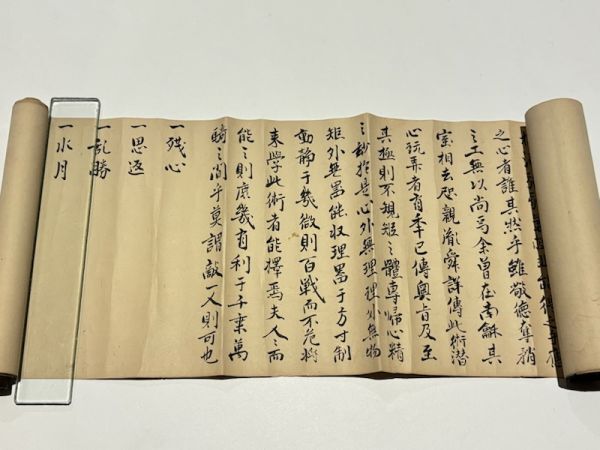 之心者誰其然乎雖敬德奪矟
之工無以尚焉余曾在南龢其
室相去咫親胤舜詳傳此術潜
心玩弄者有季已傳奧旨及至
其極則不規矩之體專帰心精
之玅於是心外無理理外無物
矩外無畧能収理畧于方寸制
動静于幾微則百戦而不危将
来學此術者能擇焉夫人之而
能之則庶幾有利于千乗萬
騎之間乎莫謂敵一人則可也
一残心
一思返
一乱勝
一水月